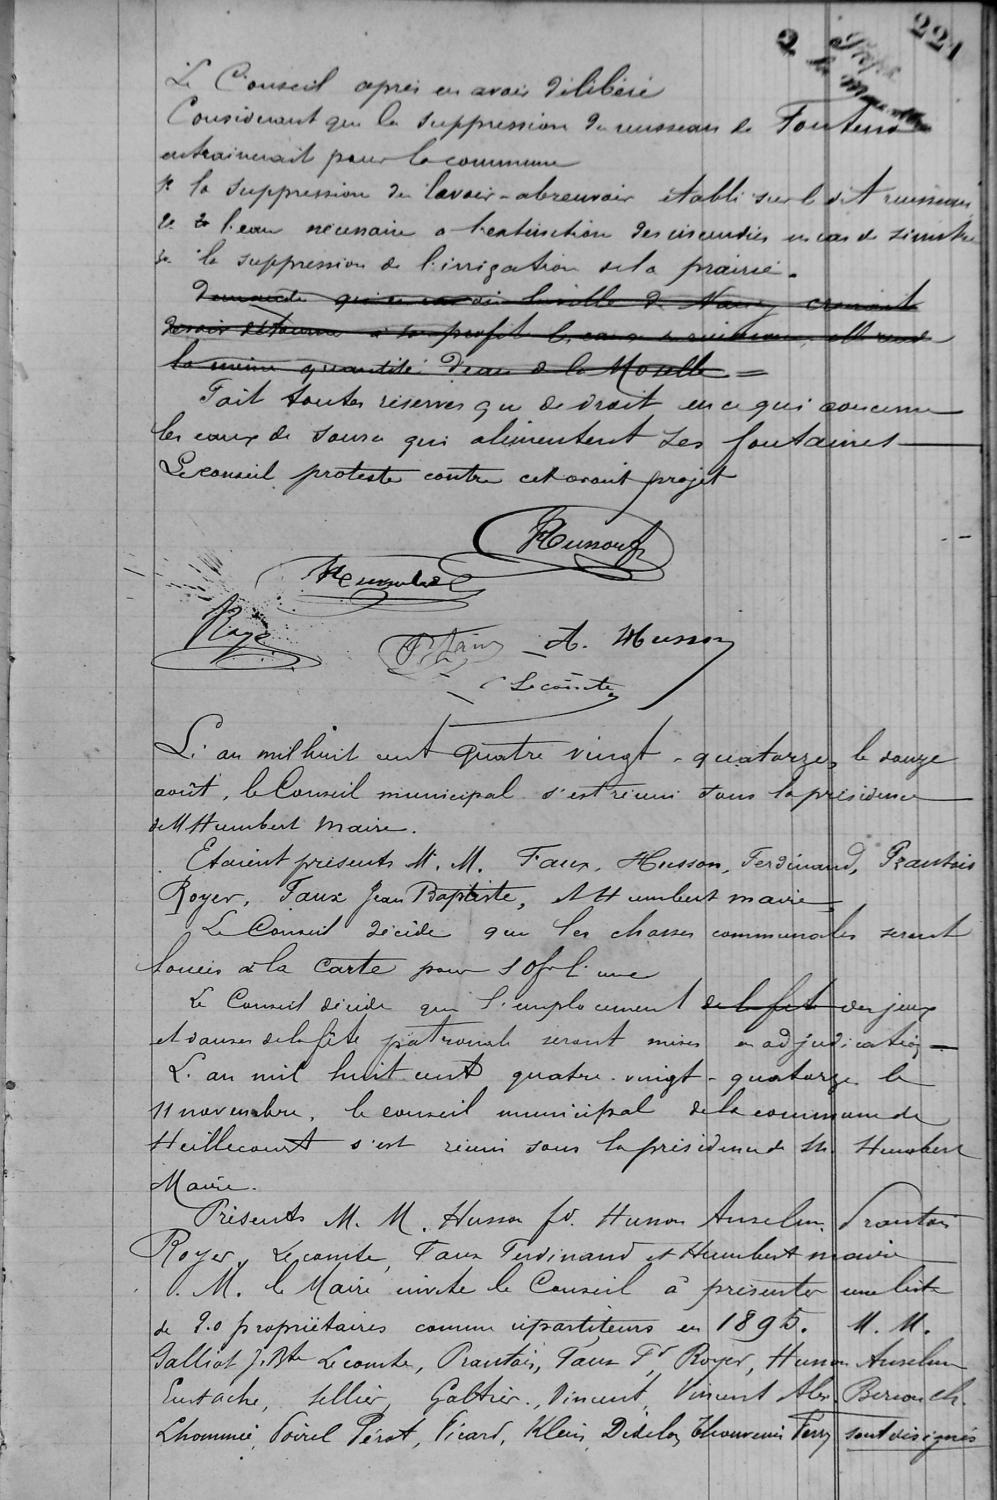 221
2
Le Conseil après en avoir délibéré
Considerant que la suppression du ruisseau de Fonteno
entrainerait pour la commune
1° la suppression du lavoir-abreuvoir établi sur le dit ruisseau
2° l'eau nécessaire a l'extinction des incendies en cas de sinistre
3° la suppression de l'irrigation de la prairie.
Demande qu'en cas où la ville de Nancy croirait
devoir détourner à son profit les eaux du ruisseau, elle rende
la même quantité d'eau de la Moselle =
Fait toutes réserves que de droit en ce qui concerne
les eaux de source qui alimentent les fontaines
Le conseil proteste contre cet avant projet
Husson f
Humbert
Royer
A. Husson
Lecomte
L'an mil huit cent quatre vingt-quatorze, le douze
août, le Conseil municipal s'est réuni sous la présidence
de M Humbert Maire.
Etaient présents M. M. Faux, Husson, Ferdinand, Prantois
Royer, Faux Jean Baptiste, et Humbert maire,
Le Conseil décide que les chasses communales seront
louées à la carte pour 10f l'une
Le Conseil décide que l'emplacement de la fête des jeux
et danses de la fête patronale seront mises en adjudication
L'an mil huit cent quatre-vingt-quatorze le
11 novembre, le conseil municipal de la commune de
Heillecourt s'est réuni sous la présidence de M. Humbert
Maire.
Présents M. M. Husson fd. Husson Anselm. Prantois
Royer, Lecomte, Faux Ferdinand et Humbert maire
M. le Maire invite le Conseil à présenter une liste
de 20 propriétaires comme répartiteurs en 1895. M. M.
Galliot J. Bte Lecomte, Prantois, Faux Fd Royer, Husson Anselm
Eustache, Sellier, Galtier, Vincent, Vincent Alex. Berson Ch.
Lhommée, Poirel Pérot, Picard, Klein, Didelon Thouvenin Ferry sont désignés